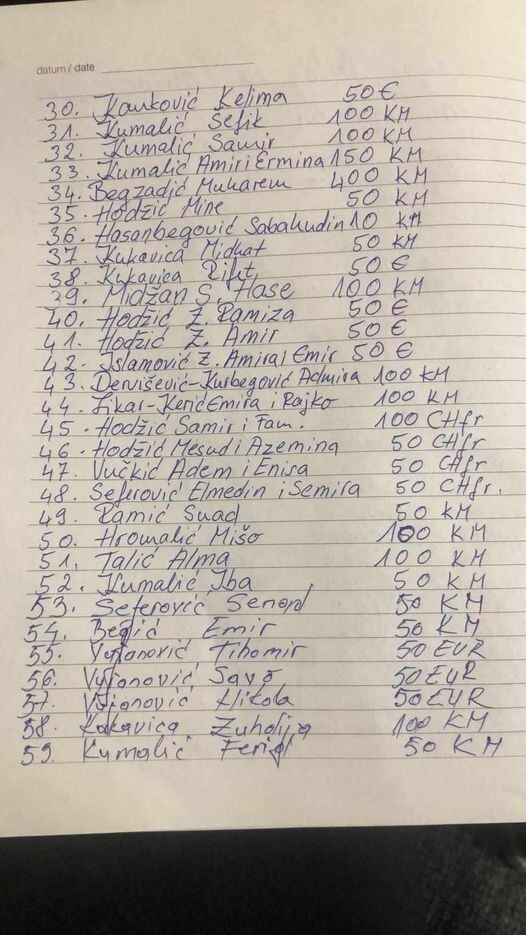 datum / date
30. Kauković Kelima 50 €
31. Kumalić Sefik 100 KM
32. Kumalić Samir 100 KM
33. Kumalić Amir i Ermina 150 KM
34. Begzadić Muharem 400 KM
35. Hodžić Mine 50 KM
36. Hasanbegović Sabahudin 10 KM
37. Kukavica Midhat 50 KM
38. Kukavica Rifet 50 €
39. Midžan S. Hase 100 KM
40. Hodžić Z. Ramiza 50 €
41. Hodžić Z. Amir 50 €
42. Islamović Z. Amira i Emir 50 €
43. Dervišević-Kurbegović Admira 100 KM
44. Likar-Kerić Emira i Rajko 100 KM
45. Hodžić Samir i Fam. 100 CHfr
46. Hodžić Mesud i Azemina 50 CHfr
47. Vučkić Adem i Enisa 50 CHfr
48. Seferović Elmedin i Semira 50 CHfr.
49. Ramić Suad 50 KM
50. Hromalić Mišo 100 KM
51. Talić Alma 100 KM
52. Kumalić Iba 50 KM
53. Seferović Senad 50 KM
54. Begić Emir 50 KM
55. Vujanović Tihomir 50 EUR
56. Vujanović Savo 50 EUR
57. Vujanović Nikola 50 EUR
58. Kukavica Zuhdija 100 KM
59. Kumalić Ferid 50 KM